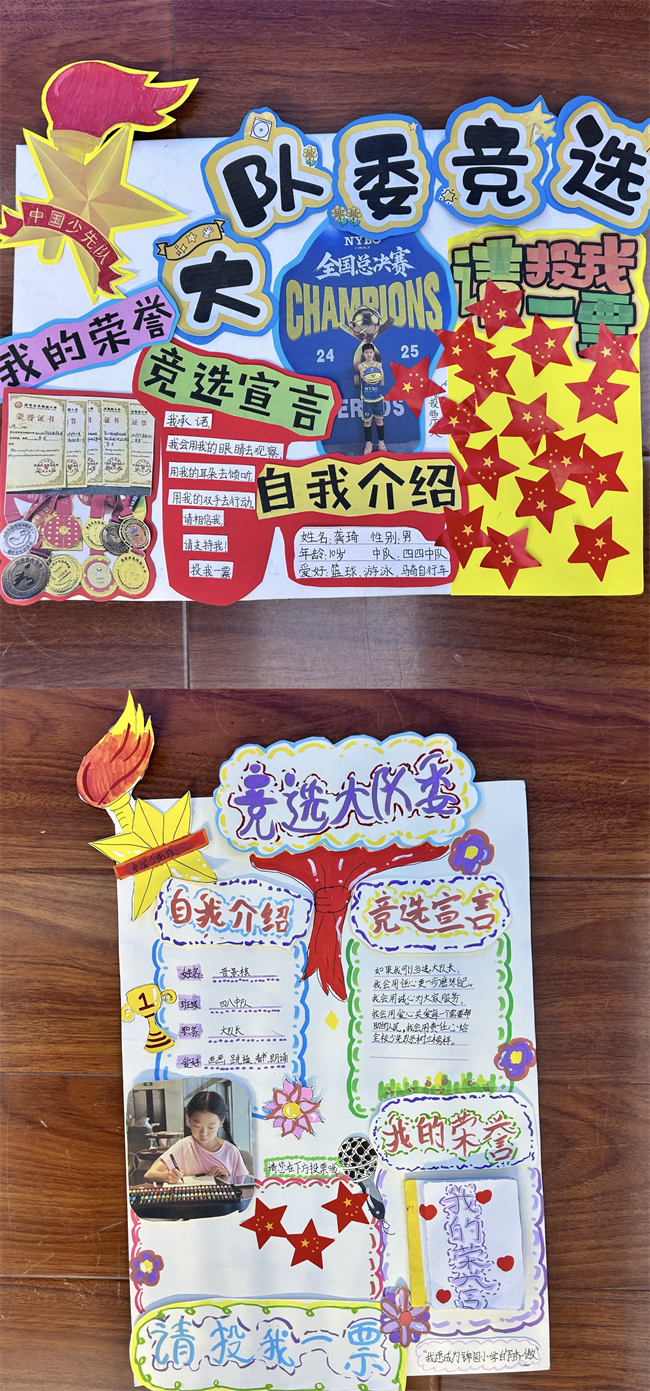 大队委竞选
中国少先队
NYBO
全国总决赛
CHAMPIONS
24 25
请投我一票
我的荣誉
荣誉证书
竞选宣言
我承诺,
我会用我的眼睛去观察,
用我的耳朵去倾听,
用我的双手去行动,
请相信我,
请支持我,
投我一票
自我介绍
姓名:龚琦 性别:男
年龄:10岁 中队:四四中队
爱好:篮球、游泳、马骑自行车
竞选大队委
中国少先队
自我介绍
姓名:
班级 四八中队
职务 大队长
爱好 画画 跳舞 朗诵
1
竞选宣言
如果我可以当选大队长,
我会用诚心为大家服务,
我会用爱心关爱每一个需要帮
助的人,我会用责任心给
全校少先队员树立榜样。
我的荣誉
请您在下方投票哦
我的荣誉
请投我一票